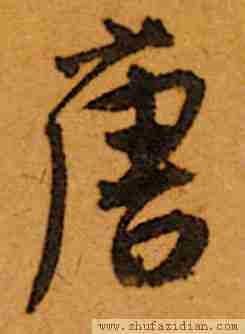 唐
www.shufazidian.com